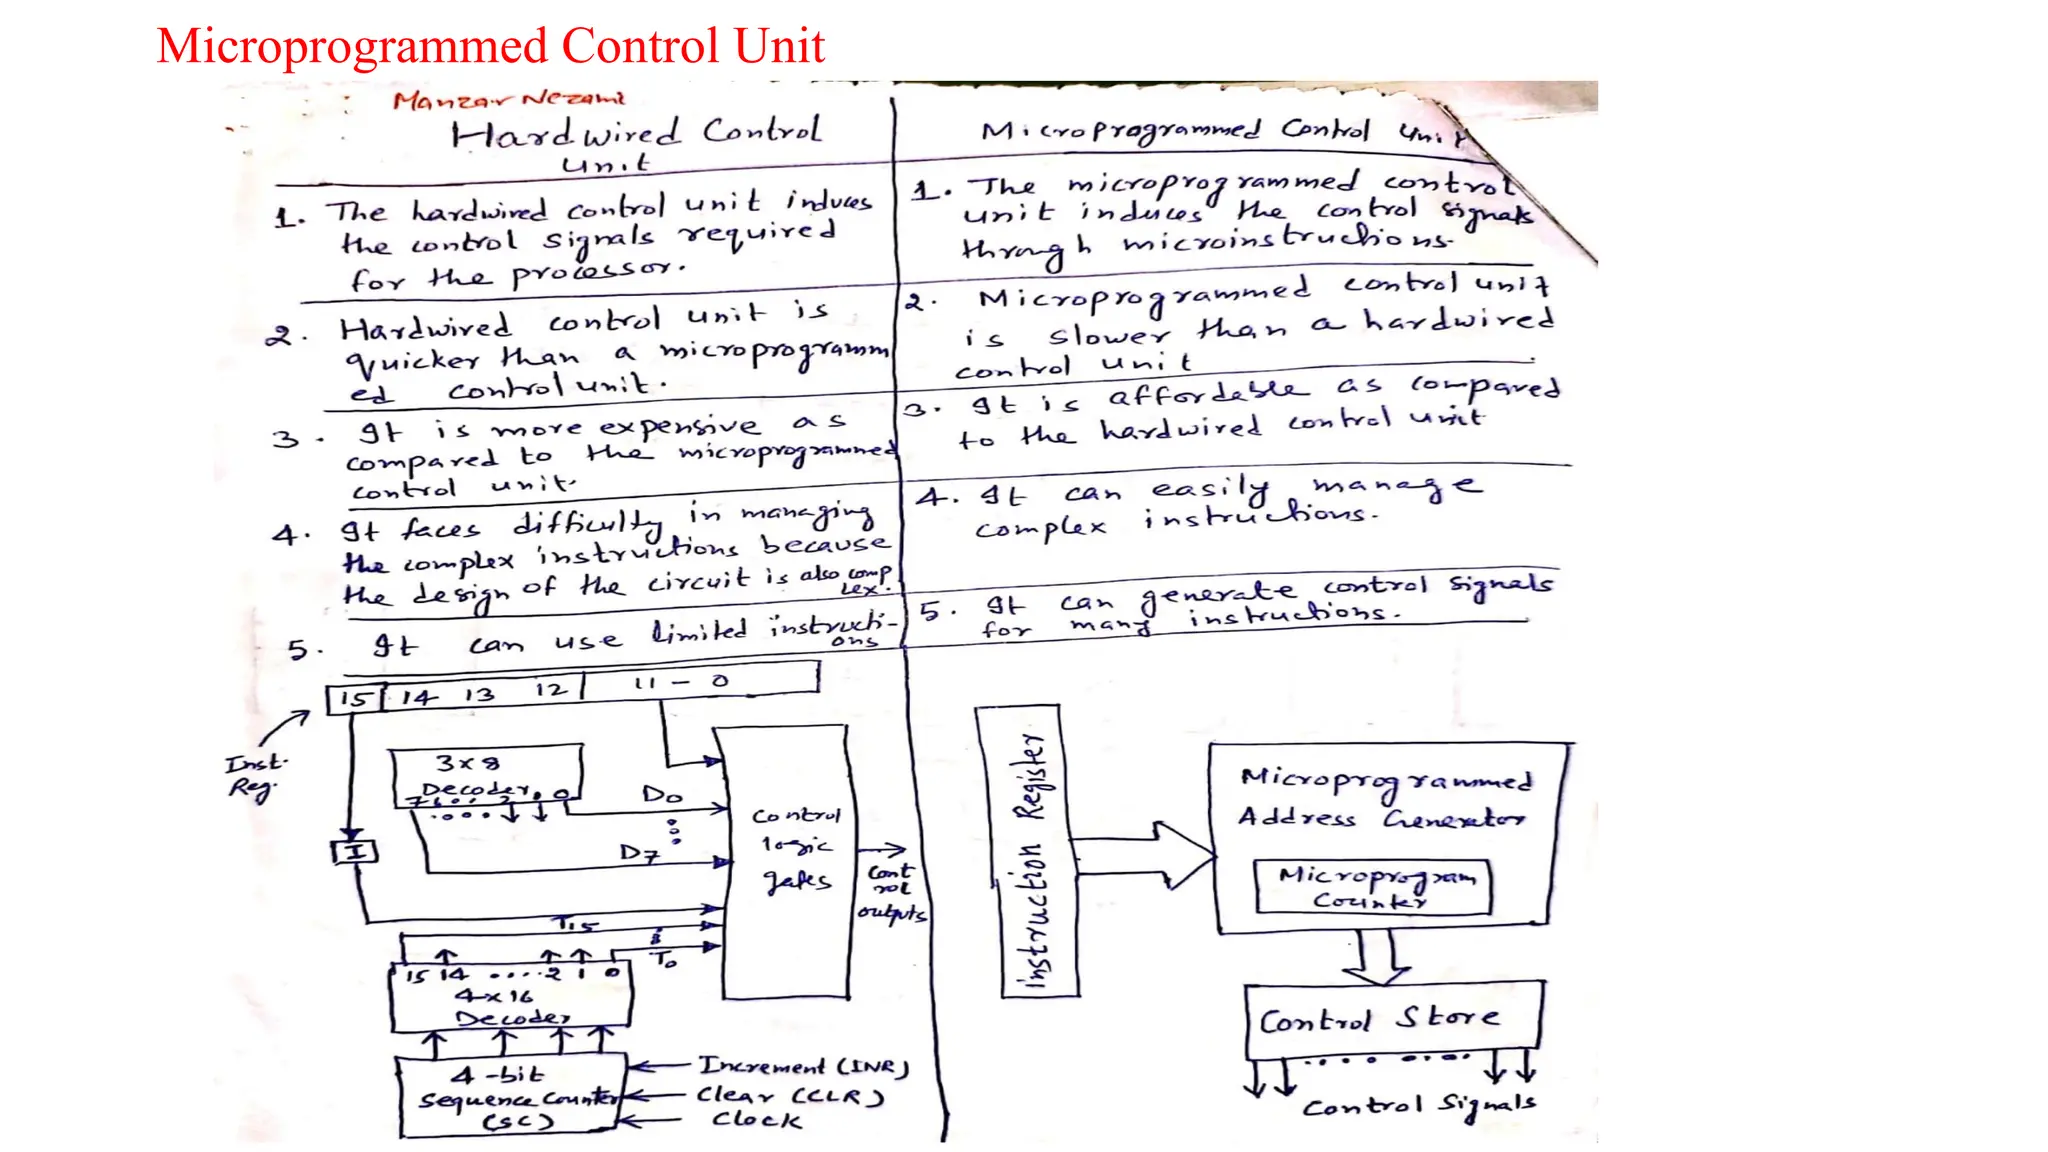 Microprogrammed Control Unit
Manzar Nezami
Hardwired Control
Unit
1. The hardwired control unit induces
the control signals required
for the processor.
2. Hardwired control unit is
quicker than a microprogramm
ed control unit.
3. It is more expensive as
compared to the microprogrammed
control unit.
4. It faces difficulty in managing
the complex instructions because
the design of the circuit is also comp
lex.
5. It can use limited instructi-
ons
Microprogrammed Control Unit
1. The microprogrammed control
unit induces the control signals
through microinstructions.
2. Microprogrammed control unit
is slower than a hardwired
control unit
3. It is affordable as compared
to the hardwired control unit
4. It can easily manage
complex instructions.
5. It can generate control signals
for many instructions.
15 14 13 12 11 - 0
Inst.
Reg.
3x8
Decoder
7 6 . . 2 1 0
D0
D7
I
Control
logic
gates
Cont
rol
outputs
T15
T0
15 14 .... 2 1 0
4x16
Decoder
4-bit
Sequence Counter
(SC)
Increment (INR)
Clear (CLR)
Clock
instruction Register
Microprogrammed
Address Generator
Microprogram
Counter
Control Store
Control Signals